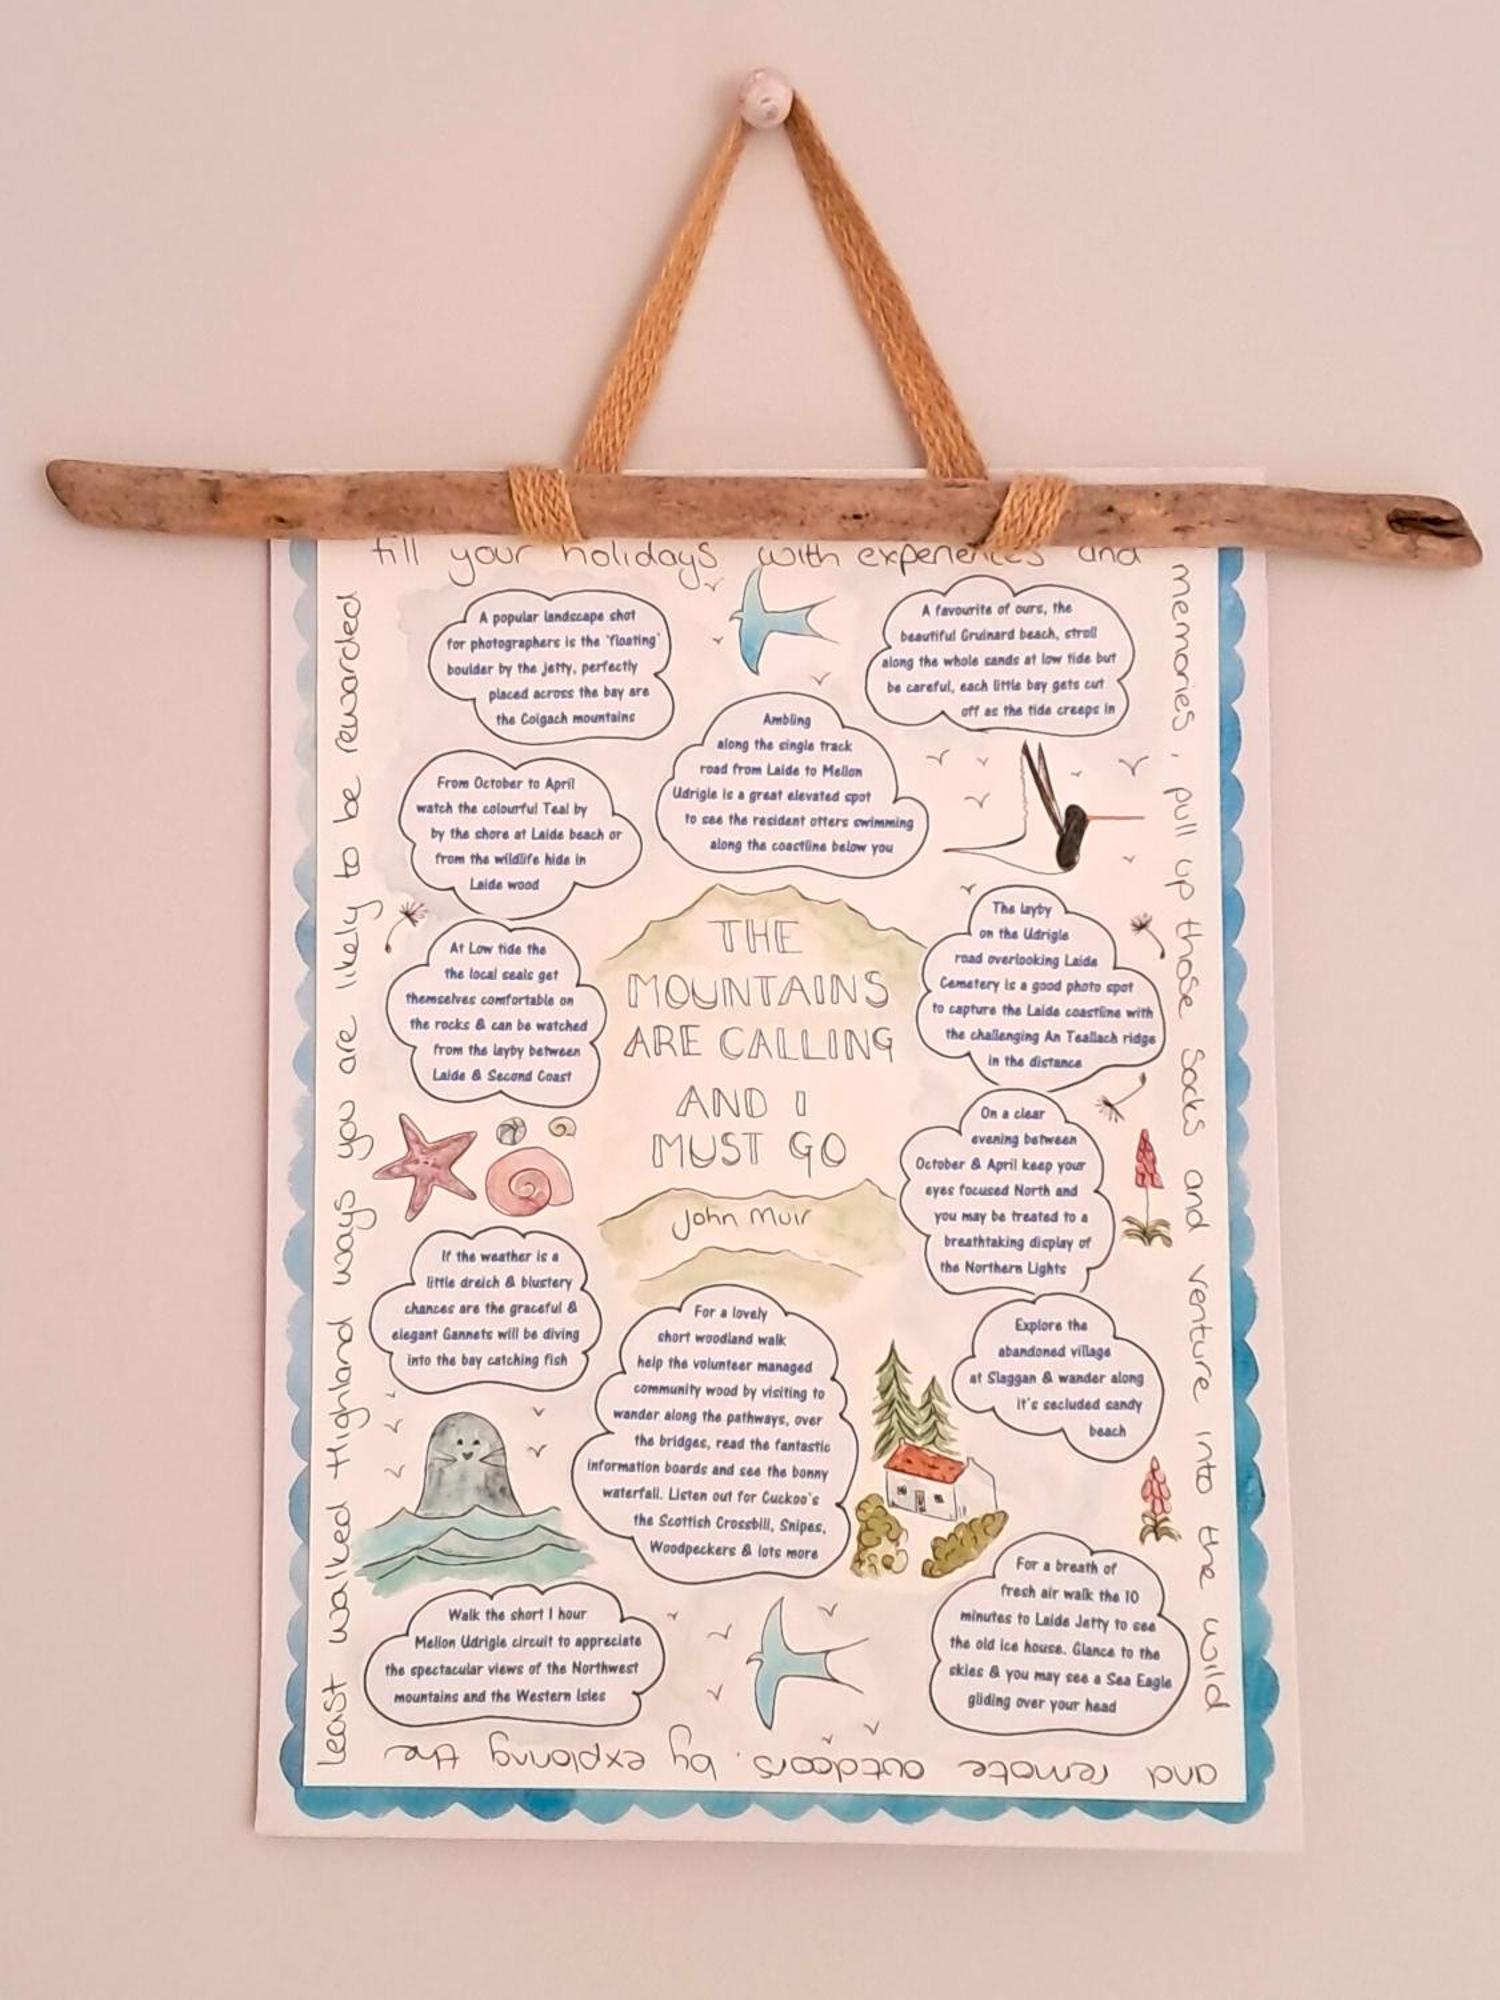 fill your holidays with experiences and
memories, pull up those socks and venture into the wild
and remote outdoors. by exploring the
least walked Highland ways you are likely to be rewarded
A popular landscape shot
for photographers is the 'floating'
boulder by the jetty, perfectly
placed across the bay are
the Coigach mountains
A favourite of ours, the
beautiful Gruinard beach, stroll
along the whole sands at low tide but
be careful, each little bay gets cut
off as the tide creeps in
Ambling
along the single track
road from Laide to Mellon
Udrigle is a great elevated spot
to see the resident otters swimming
along the coastline below you
From October to April
watch the colourful Teal by
by the shore at Laide beach or
from the wildlife hide in
Laide wood
At Low tide the
the local seals get
themselves comfortable on
the rocks & can be watched
from the layby between
Laide & Second Coast
THE
MOUNTAINS
ARE CALLING
AND I
MUST GO
John Muir
The layby
on the Udrigle
road overlooking Laide
Cemetery is a good photo spot
to capture the Laide coastline with
the challenging An Teallach ridge
in the distance
On a clear
evening between
October & April keep your
eyes focused North and
you may be treated to a
breathtaking display of
the Northern Lights
If the weather is a
little dreich & blustery
chances are the graceful &
elegant Gannets will be diving
into the bay catching fish
For a lovely
short woodland walk
help the volunteer managed
community wood by visiting to
wander along the pathways, over
the bridges, read the fantastic
information boards and see the bonny
waterfall. Listen out for Cuckoo's
the Scottish Crossbill, Snipes,
Woodpeckers & lots more
Explore the
abandoned village
at Slaggan & wander along
it's secluded sandy
beach
Walk the short 1 hour
Mellon Udrigle circuit to appreciate
the spectacular views of the Northwest
mountains and the Western Isles
For a breath of
fresh air walk the 10
minutes to Laide Jetty to see
the old ice house. Glance to the
skies & you may see a Sea Eagle
gliding over your head